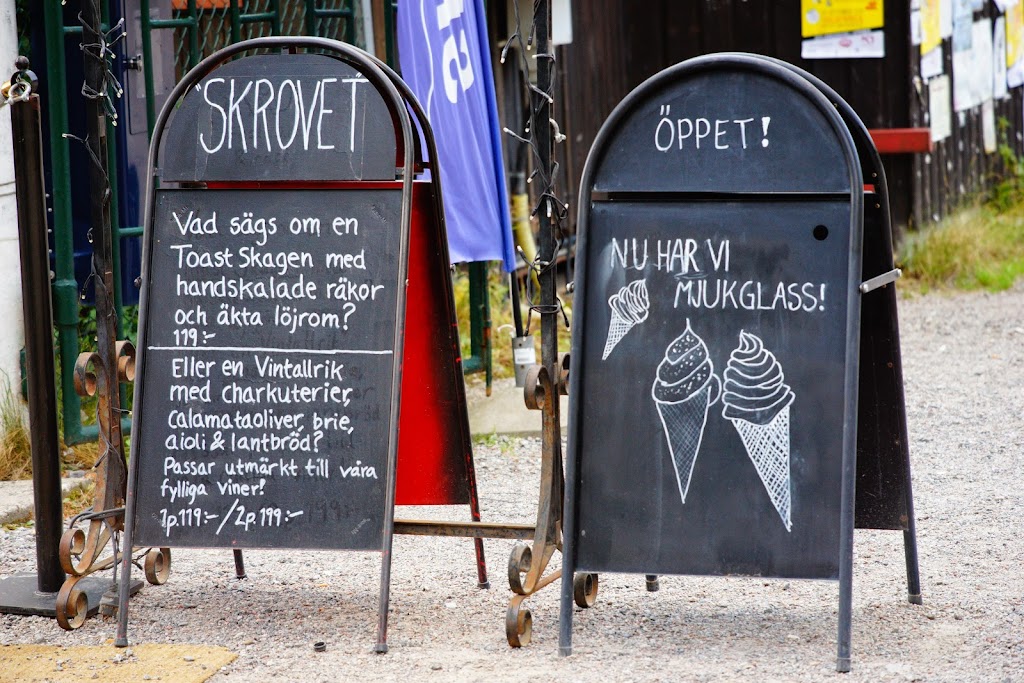 "SKROVET"
Vad sägs om en
Toast Skagen med
handskalade räkor
och äkta löjrom?
119:-
Eller en Vintallrik
med charkuterier,
calamataoliver, brie,
aioli & lantbröd?
Passar utmärkt till våra
fylliga viner!
1p.119:-/2p.199:-
ÖPPET!
NU HAR VI
MJUKGLASS!